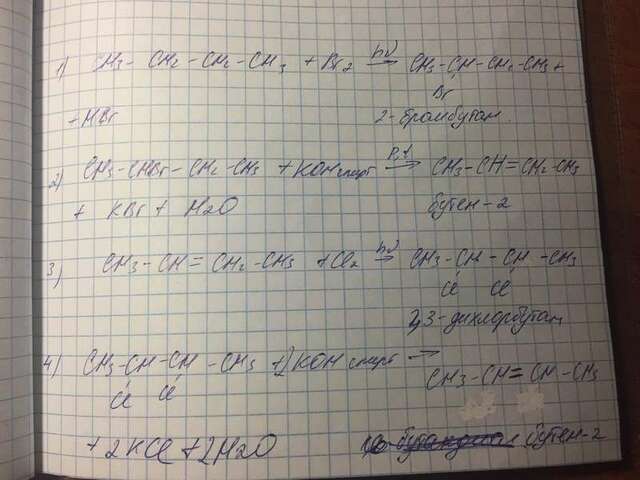 1) CH3 - CH2 - CH2 - CH3 + Br2 hν → CH3 - CH - CH2 - CH3 +
Br
+ HBr 2-бромбутан.
2) CH3 - CHBr - CH2 - CH3 + KOH спирт P,t → CH3 - CH = CH2 - CH3
+ KBr + H2O бутен-2
3) CH3 - CH = CH2 - CH3 + Cl2 hν → CH3 - CH - CH - CH3
Cl Cl
2,3-дихлорбутан
4) CH3 - CH - CH - CH3 + 2KOH спирт →
Cl Cl CH3 - CH = CH - CH3
+ 2KCl + 2H2O бутен-2